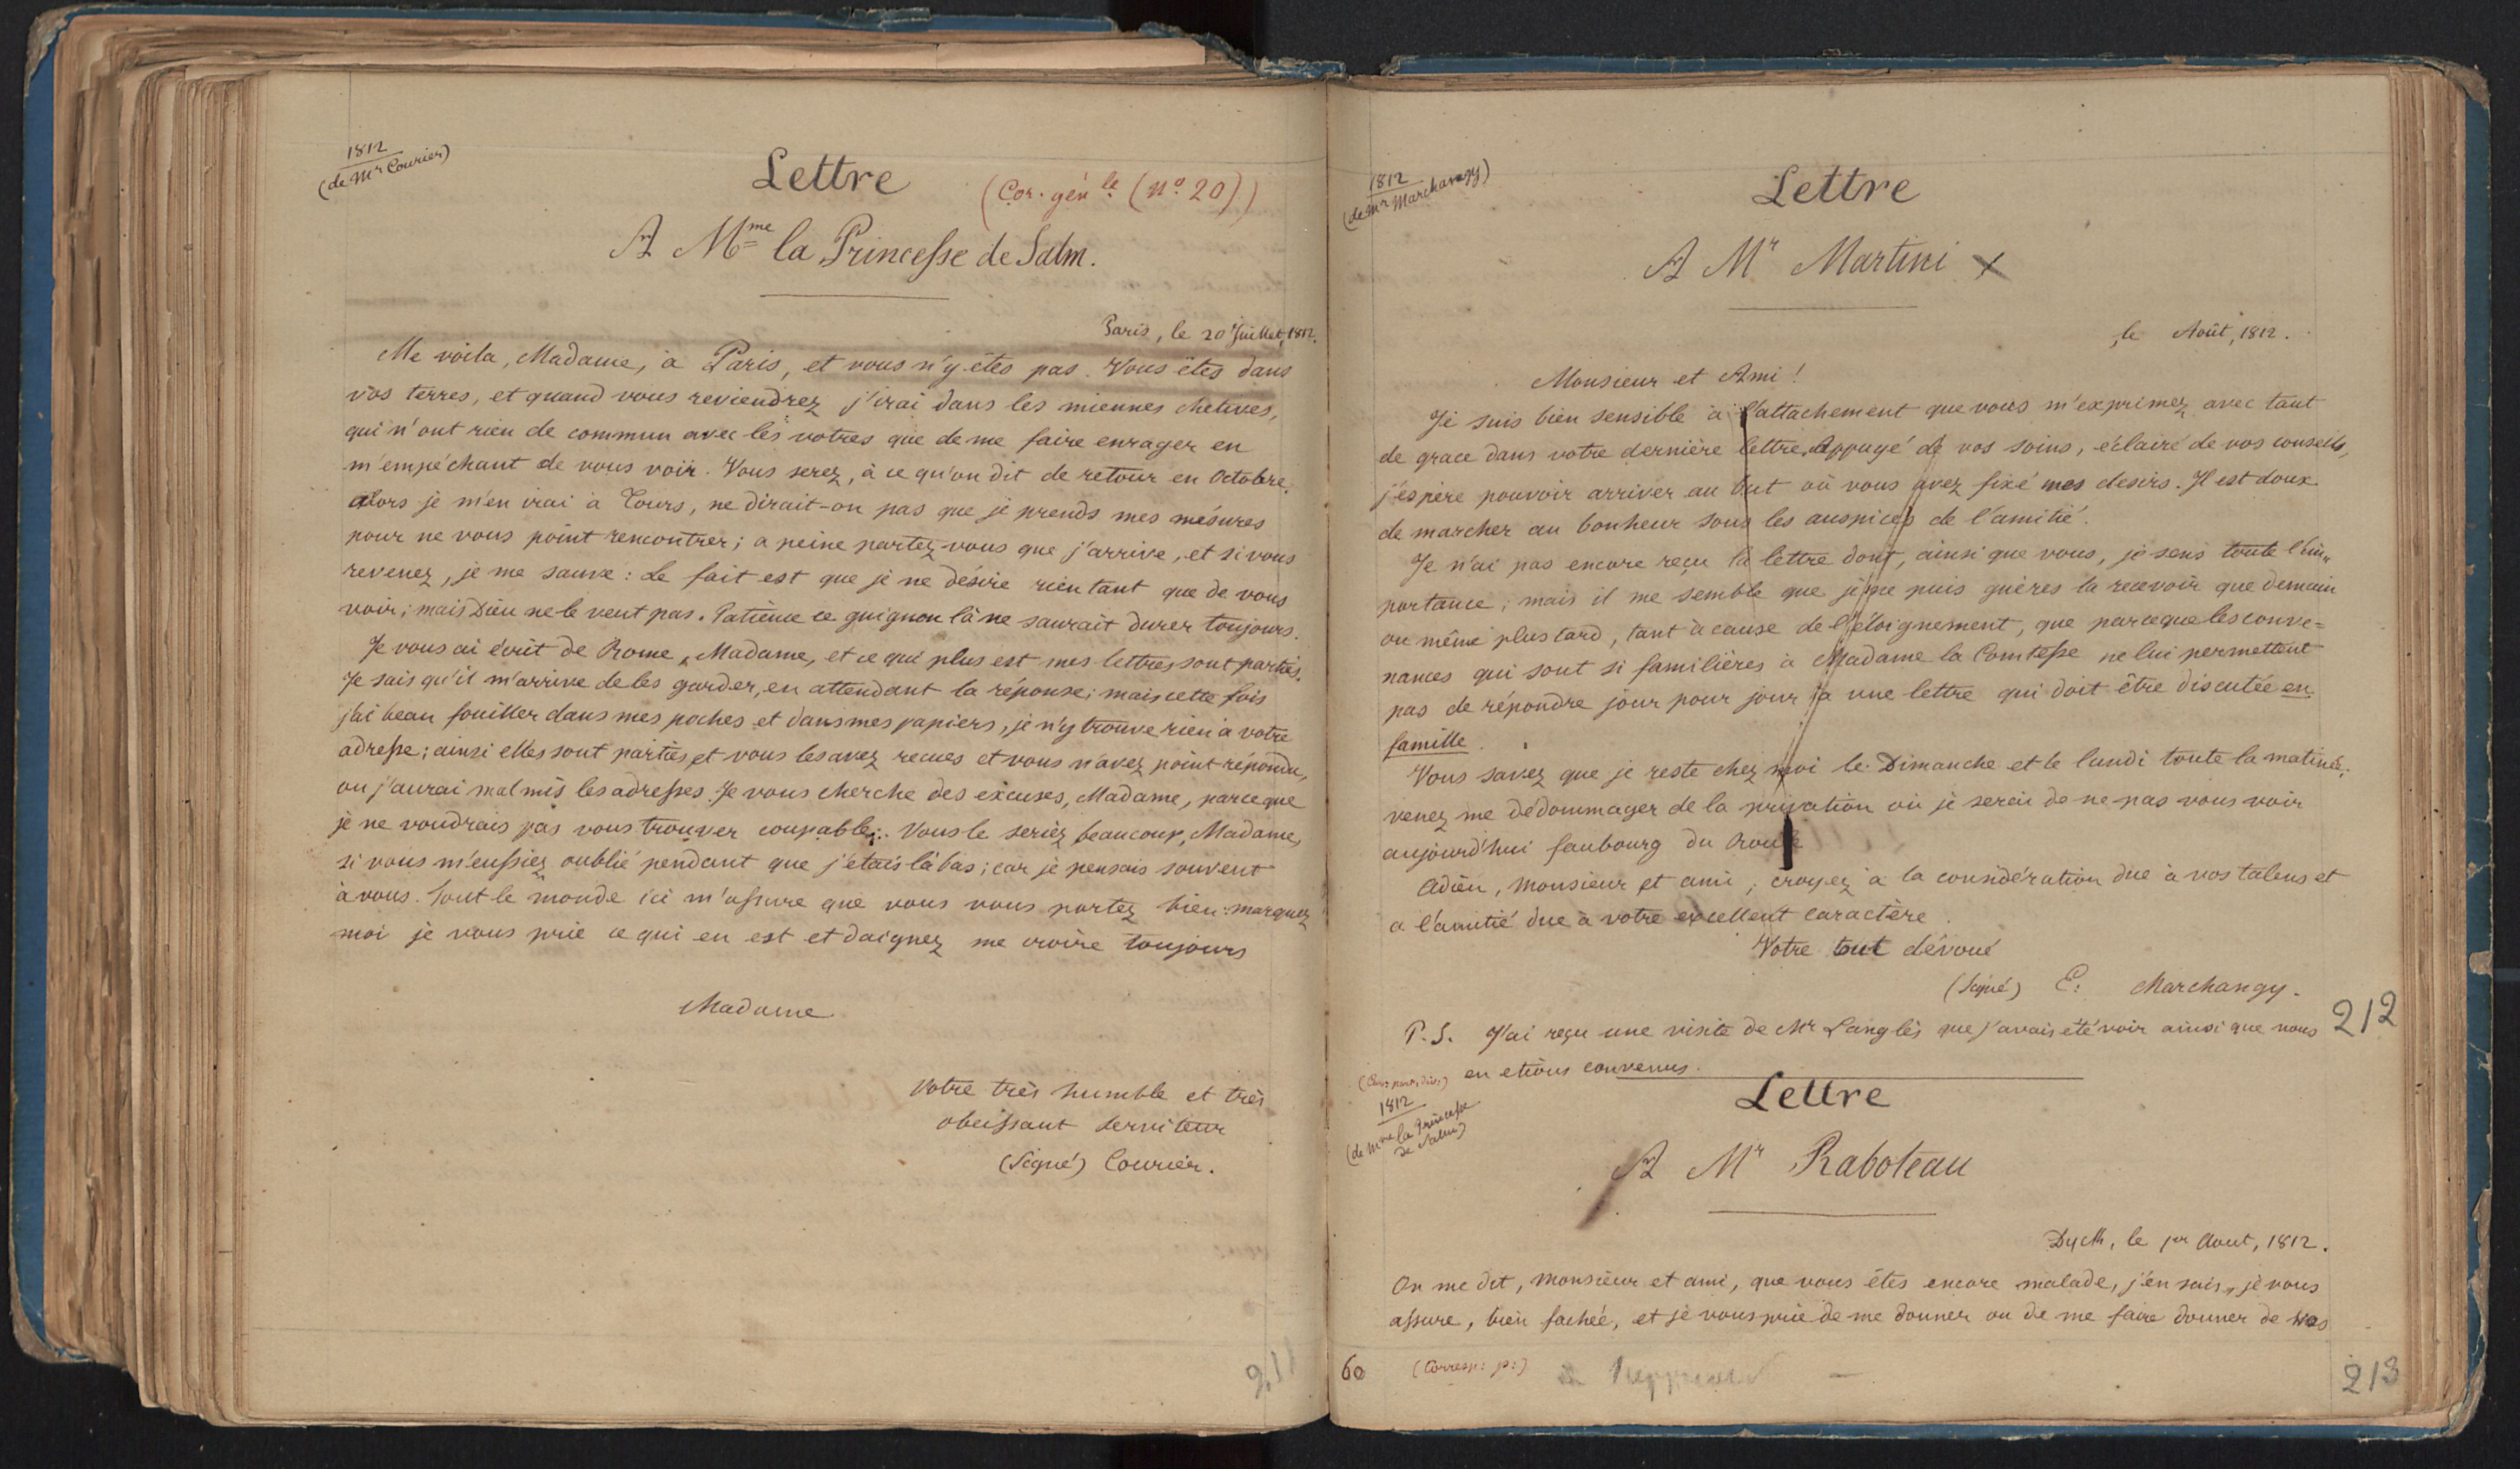 1812
(de Mr Courier)
Lettre
(Cor. gén le (No. 20))
A Mme la Princesse de Salm.
Paris, le 20 Juillet, 1812.
Me voila, Madame, à Paris, et vous n'y êtes pas. Vous êtes dans
vos terres, et quand vous reviendrez j'irai dans les miennes chetives,
qui n'ont rien de commun avec les votres que de me faire enrager en
m'empéchant de vous voir. Vous serez, à ce qu'on dit de retour en Octobre.
alors je m'en irai à Tours, ne dirait-on pas que je prends mes mésures
pour ne vous point rencontrer; a peine partez-vous que j'arrive, et si vous
revenez, je me sauve: Le fait est que je ne désire rien tant que de vous
voir; mais Dieu ne le veut pas. Patience ce guignon là ne saurait durer toujours.
Je vous ai écrit de Rome, Madame, et ce qui plus est mes lettres sont parties.
Je sais qu'il m'arrive de les garder, en attendant la réponse; mais cette fois
j'ai beau fouiller dans mes poches et dans mes papiers, je n'y trouve rien à votre
adresse; ainsi elles sont parties et vous les avez recues et vous n'avez point répondu,
ou j'aurai mal mis les adresses. Je vous cherche des excuses, Madame, parceque
je ne voudrais pas vous trouver coupable. Vous le seriez beaucoup, Madame,
si vous m'eussiez oublié pendant que j'etais là bas; car je pensais souvent
à vous. Tout le monde ici m'assure que vous vous portez bien: marquez
moi je vous prie ce qui en est et daignez me croire toujours
Madame
Votre très humble et très
obeissant serviteur
(Signé) Courier.
211
1812
(de Mr Marchangy)
Lettre
A Mr Martini x
, le Août, 1812.
Monsieur et Ami!
Je suis bien sensible à l'attachement que vous m'exprimez avec tant
de grace dans votre dernière lettre. Appuyé de vos soins, éclairé de vos conseils,
j'espère pouvoir arriver au but où vous avez fixé mes desirs. Il est doux
de marcher au bonheur sous les auspices de l'amitié.
Je n'ai pas encore reçu la lettre dont, ainsi que vous, je sens toute l'im=
portance; mais il me semble que je ne puis guères la recevoir que demain
ou même plus tard, tant à cause de l'éloignement, que parceque les conve=
nances qui sont si familières à Madame la Comtesse ne lui permettent
pas de répondre jour pour jour à une lettre qui doit être discutée en
famille.
Vous savez que je reste chez moi le Dimanche et le lundi toute la matinée;
venez me dédommager de la privation où je serai de ne pas vous voir
aujourd'hui faubourg du Roule
Adieu, Monsieur et ami; croyez à la considération due à vos talens et
a l'amitié due à votre excellent caractère.
Votre tout dévoué
(Signé) E. Marchangy.
212
P. S. J'ai reçu une visite de Mr Langlès que j'avais été voir ainsi que nous
en etions convenus.
1812
(de Mme la Princesse
de Salm)
Lettre
A Mr Raboteau
Dyck, le 1er Aout, 1812.
On me dit, Monsieur et ami, que vous êtes encore malade, j'en suis, je vous
assure, bien fachée, et je vous prie de me donner ou de me faire donner de vos
60
(Corresp: p:)
213